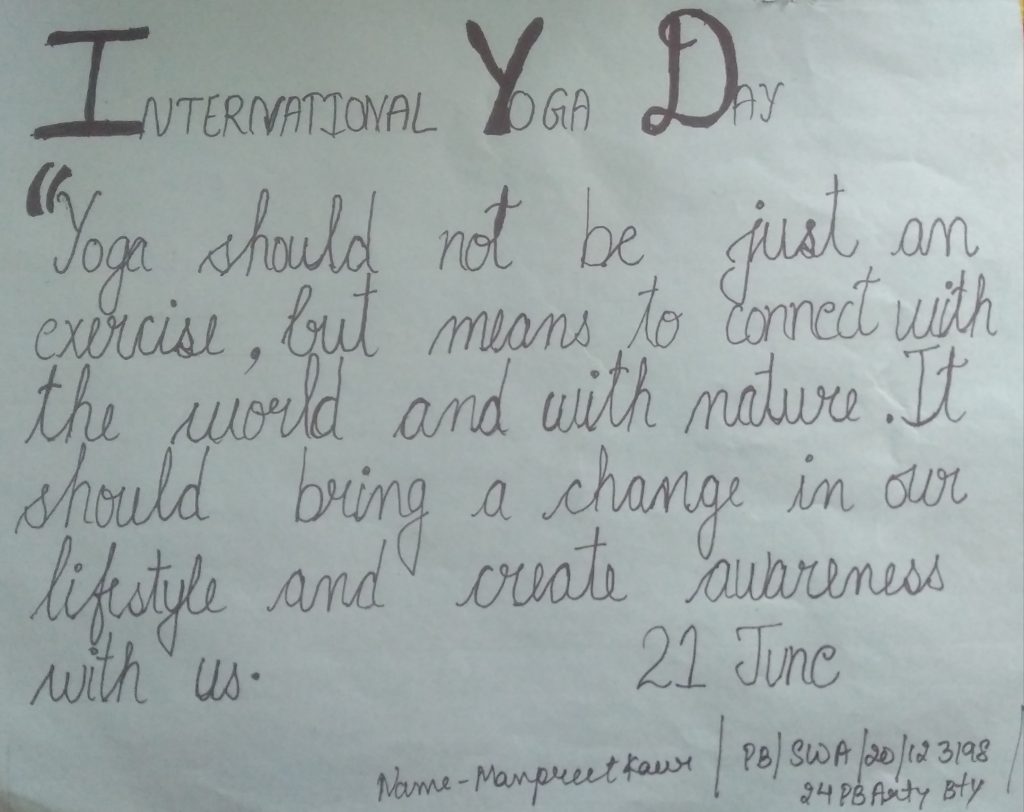 INTERNATIONAL YOGA DAY
“Yoga should not be just an
exercise, but means to connect with
the world and with nature. It
should bring a change in our
lifestyle and create awareness
with us.
21 June
Name-Manpreet Kaur | PB/SWA/20/123198
24 PB Arty Bty